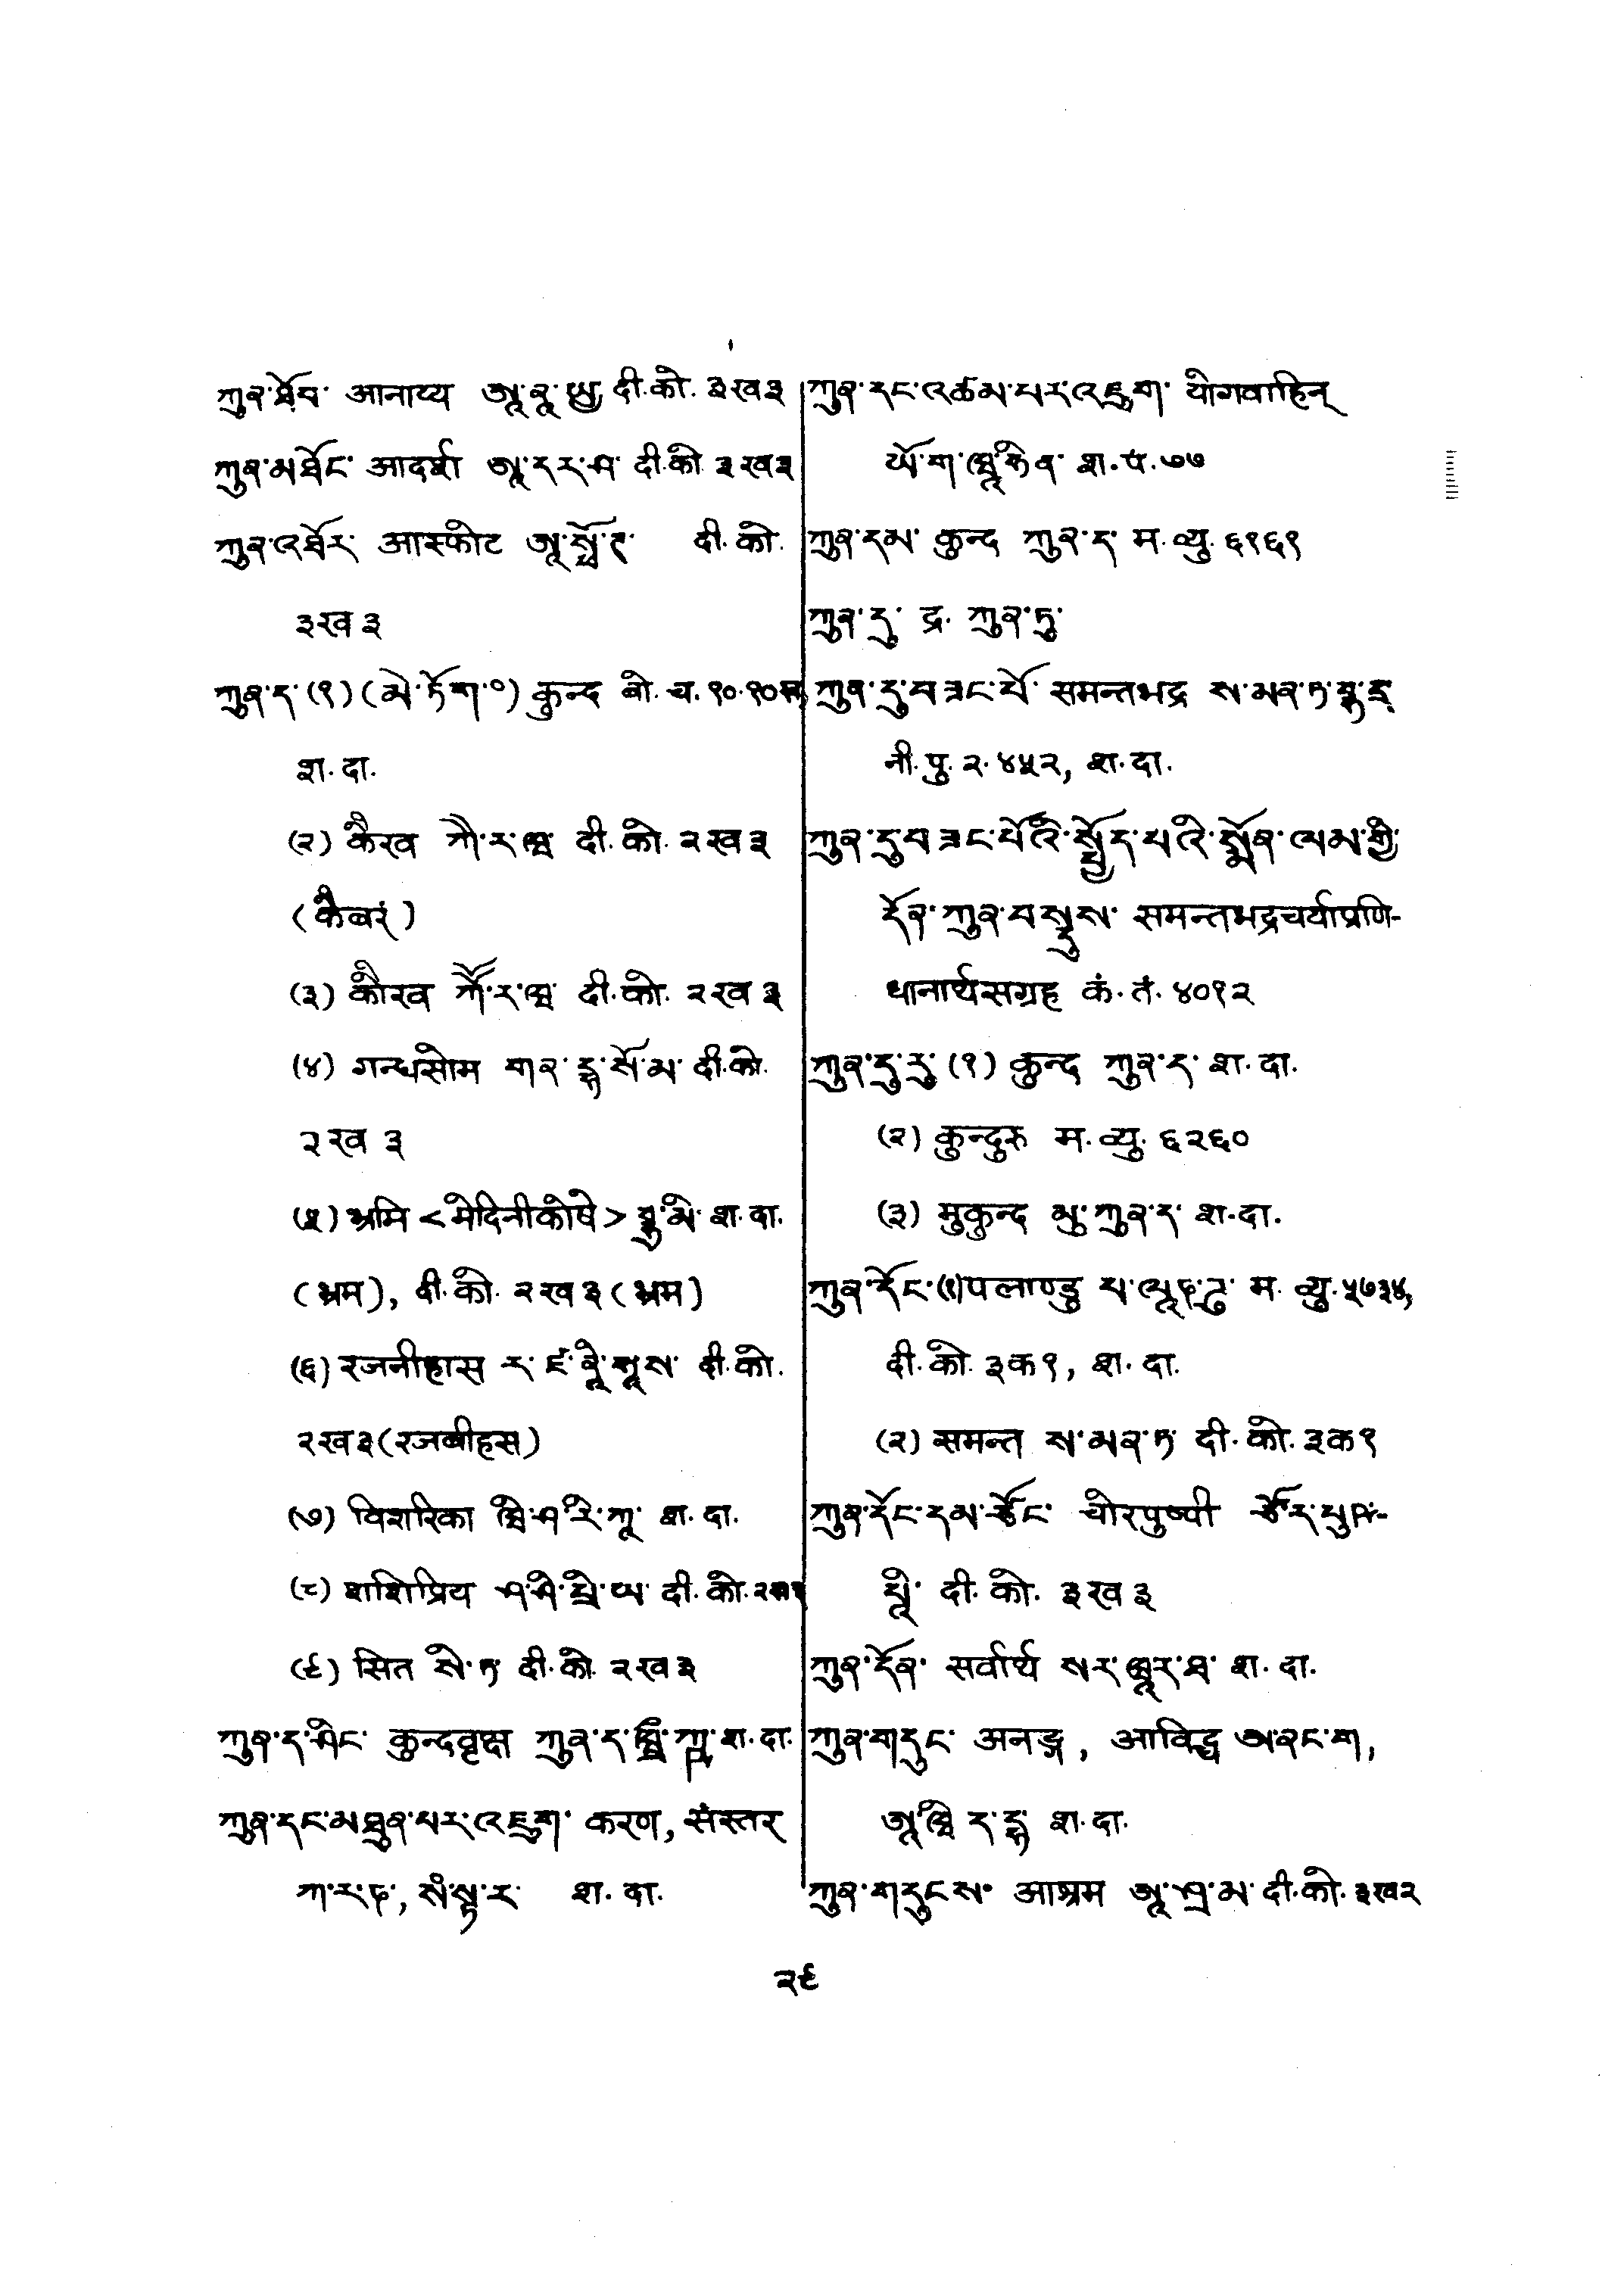 ཀུན་ཐོབ་ आनाय्य ཨཱ་ནཱ་ཡྱ दी.को. ३ख३
ཀུན་མཐོང་ आदर्श ཨཱ་དར་ཤ་ दी.को ३ख३
ཀུན་འཐོར་ आस्फोट ཨཱ་སྥོ་ཊ་ दी.को.
३ख३
ཀུན་ད་ (१) (མེ་ཏོག་०) कुन्द बो.च. १०.१०
श.दा.
(२) कैरव ཀཻ་ར་ཝ་ दी.को. २ख३
(कैवरं)
(३) कौरव ཀཽ་ར་ཝ་ दी.को. २ख३
(४) गन्धसोम གན་དྷ་སོ་མ་ दी.को.
२ख३
(५) भ्रमि <मेदिनीकोषे> བྷྲ་མི་ श.दा.
(भ्रम), दी.को. २ख३ (भ्रम)
(६) रजनीहास ར་ཛ་ནཱི་ཧཱས་ दी.को.
२ख३ (रजबीहस)
(७) विशरिका ཝི་ཤ་རི་ཀཱ་ श.दा.
(८) शशिप्रिय ཤ་ཤི་པྲི་ཡ་ दी.को.
(९) सित སི་ཏ་ दी.को. २ख३
ཀུན་ད་ཤིང་ कुन्दवृक्ष ཀུན་ད་ श.दा.
ཀུན་དང་མཐུན་པར་འཇུག་ करण, संस्तर
ཀ་ར་ཎ་, སཾ་སྟ་ར་ श.दा.
ཀུན་དང་འཚམ་པར་འཇུག་ योगवाहिन्
ཡོ་ག་ཝཱ་ཧིན་ श.प.७७
ཀུན་དམ་ कुन्द ཀུན་ད་ म.व्यु. ६१६१
ཀུན་དུ་ द्र. ཀུན་ཏུ་
ཀུན་དུ་བཟང་པོ་ समन्तभद्र ས་མན་ཏ་བྷ་དྲ་
नी.पु. २.४५२, श.दा.
ཀུན་དུ་བཟང་པོའི་སྤྱོད་པའི་སྨོན་ལམ་གྱི་
དོན་ཀུན་བསྡུས་ समन्तभद्रचर्याप्रणि-
धानार्थसग्रह कं.तं. ४०१२
ཀུན་དུ་རུ་ (१) कुन्द ཀུན་ད་ श.दा.
(२) कुन्दुरु म.व्यु. ६२६०
(३) मुकुन्द མུ་ཀུན་ད་ श.दा.
ཀུན་དོང་ (१) पलाण्डु པ་ལཱཎ་ཌུ་ म.व्यु. ५७३४,
दी.को. ३क१, श.दा.
(२) समन्त ས་མན་ཏ་ दी.को. ३क१
ཀུན་དོང་དམ་ चोरपुष्पी ཙོ་ར་པུཥ-
པཱི་ दी.को. ३ख३
ཀུན་དོན་ सर्वार्थ སར་ཝཱར་ཐ་ श.दा.
ཀུན་གདུང་ अनङ्ग, आविद्ध ཨ་ནང་ག,
ཨཱ་ཝི་ད་དྷ་ श.दा.
ཀུན་གདུངས་ आश्रम ཨཱ་ཤྲ་མ་ दी.को. ३ख२
२९